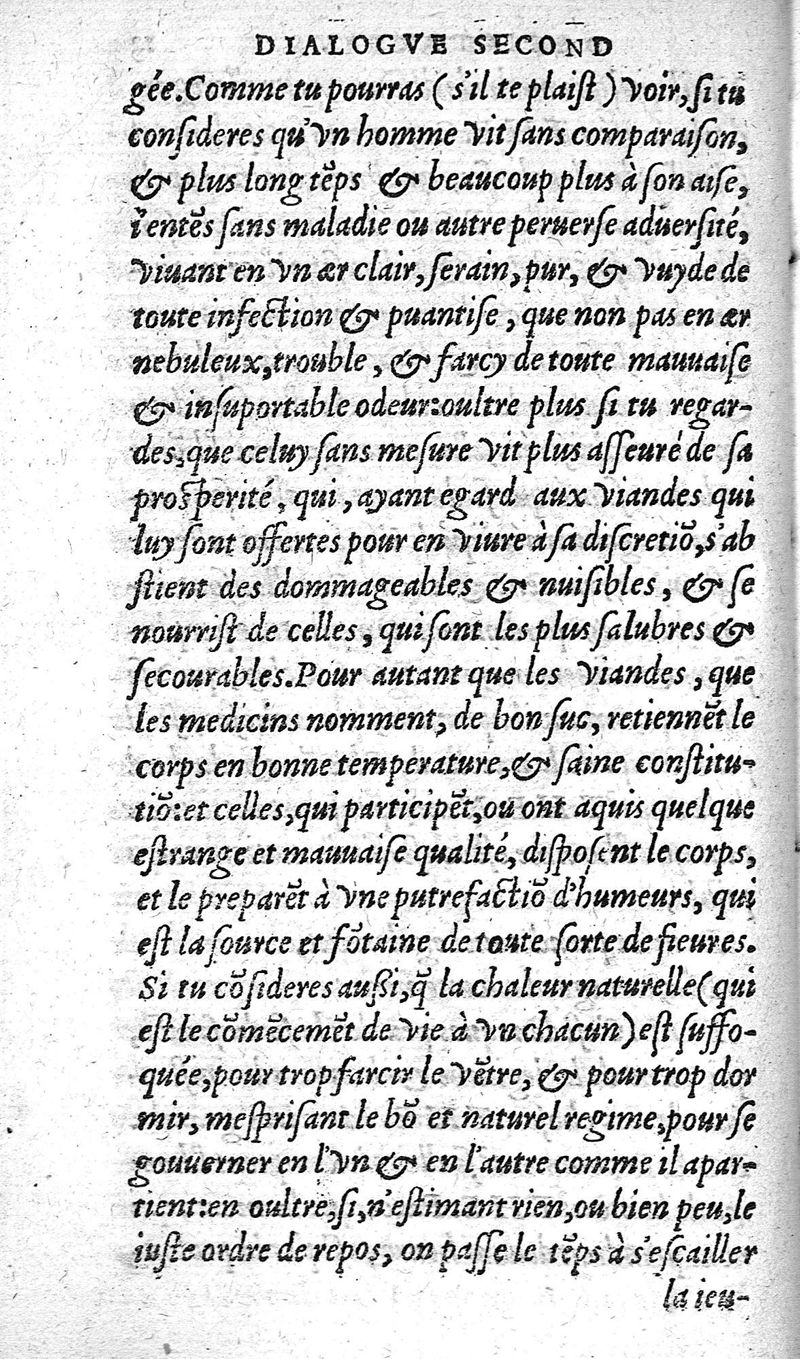 DIALOGVE SECOND
gée.Comme tu pourras ( s'il te plaiſt ) voir,ſi tu
conſideres qu'vn homme vit ſans comparaiſon,
& plus long tẽps & beaucoup plus à ſon aiſe,
ı̃entẽs ſans maladie ou autre peruerſe aduerſité,
viuant en vn ær clair, ſerain, pur, & vuyde de
toute infection & puantiſe , que non pas en ær
nebuleux,trouble , & farcy de toute mauuaiſe
& inſuportable odeur:oultre plus ſi tu regar-
des,que celuy ſans meſure vit plus aſſeuré de ſa
proſperité , qui , ayant egard aux viandes qui
luy ſont offertes pour en viure à ſa diſcretiõ,s'ab
ſtient des dommageables & nuiſibles , & ſe
nourriſt de celles , qui ſont les plus ſalubres &
ſecourables.Pour autant que les viandes , que
les medicins nomment, de bon ſuc, retiennẽt le
corps en bonne temperature,& ſaine conſtitu-
tiõ:et celles,qui participẽt,ou ont aquis quelque
eſtrange et mauuaiſe qualité, diſpoſent le corps,
et le preparẽt à vne putrefactiõ d'humeurs, qui
eſt la ſource et fõtaine de toute ſorte de fieures.
Si tu cõſideres außi,q̃ la chaleur naturelle(qui
eſt le cõmẽcemẽt de vie à vn chacun) eſt ſuffo-
quée,pour trop farcir le vẽtre, & pour trop dor
mir, meſpriſant le bõ et naturel regime,pour ſe
gouuerner en l'vn & en l'autre comme il apar-
tient:en oultre,ſi,n'eſtimant rien,ou bien peu,le
iuſte ordre de repos, on paſſe le tẽps à s'eſcailler
la ieu-